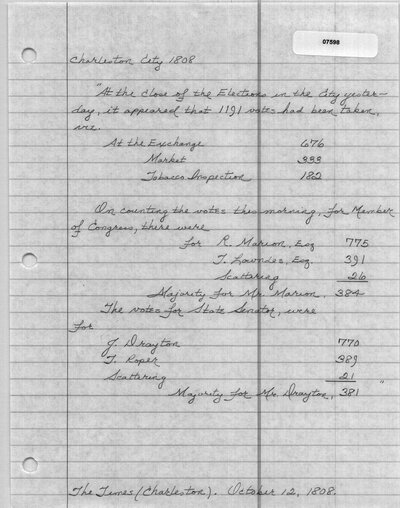 07598
Charleston City 1808
"At the close of the Elections in the City yester-
day, it appeared that 1191 votes had been taken,
viz.
At the Exchange 676
Market 333
Tobacco Inspection 182
On counting the votes this morning, for Member
of Congress, there were
for R. Marion, Esq 775
T. Lowndes, Esq 391
Scattering 26
Majority for Mr. Marion, 384
The votes for State Senator, were
for
J. Drayton 770
T. Roper 389
Scattering 21
Majority for Mr. Drayton, 381 "
The Times (Charleston). October 12, 1808.